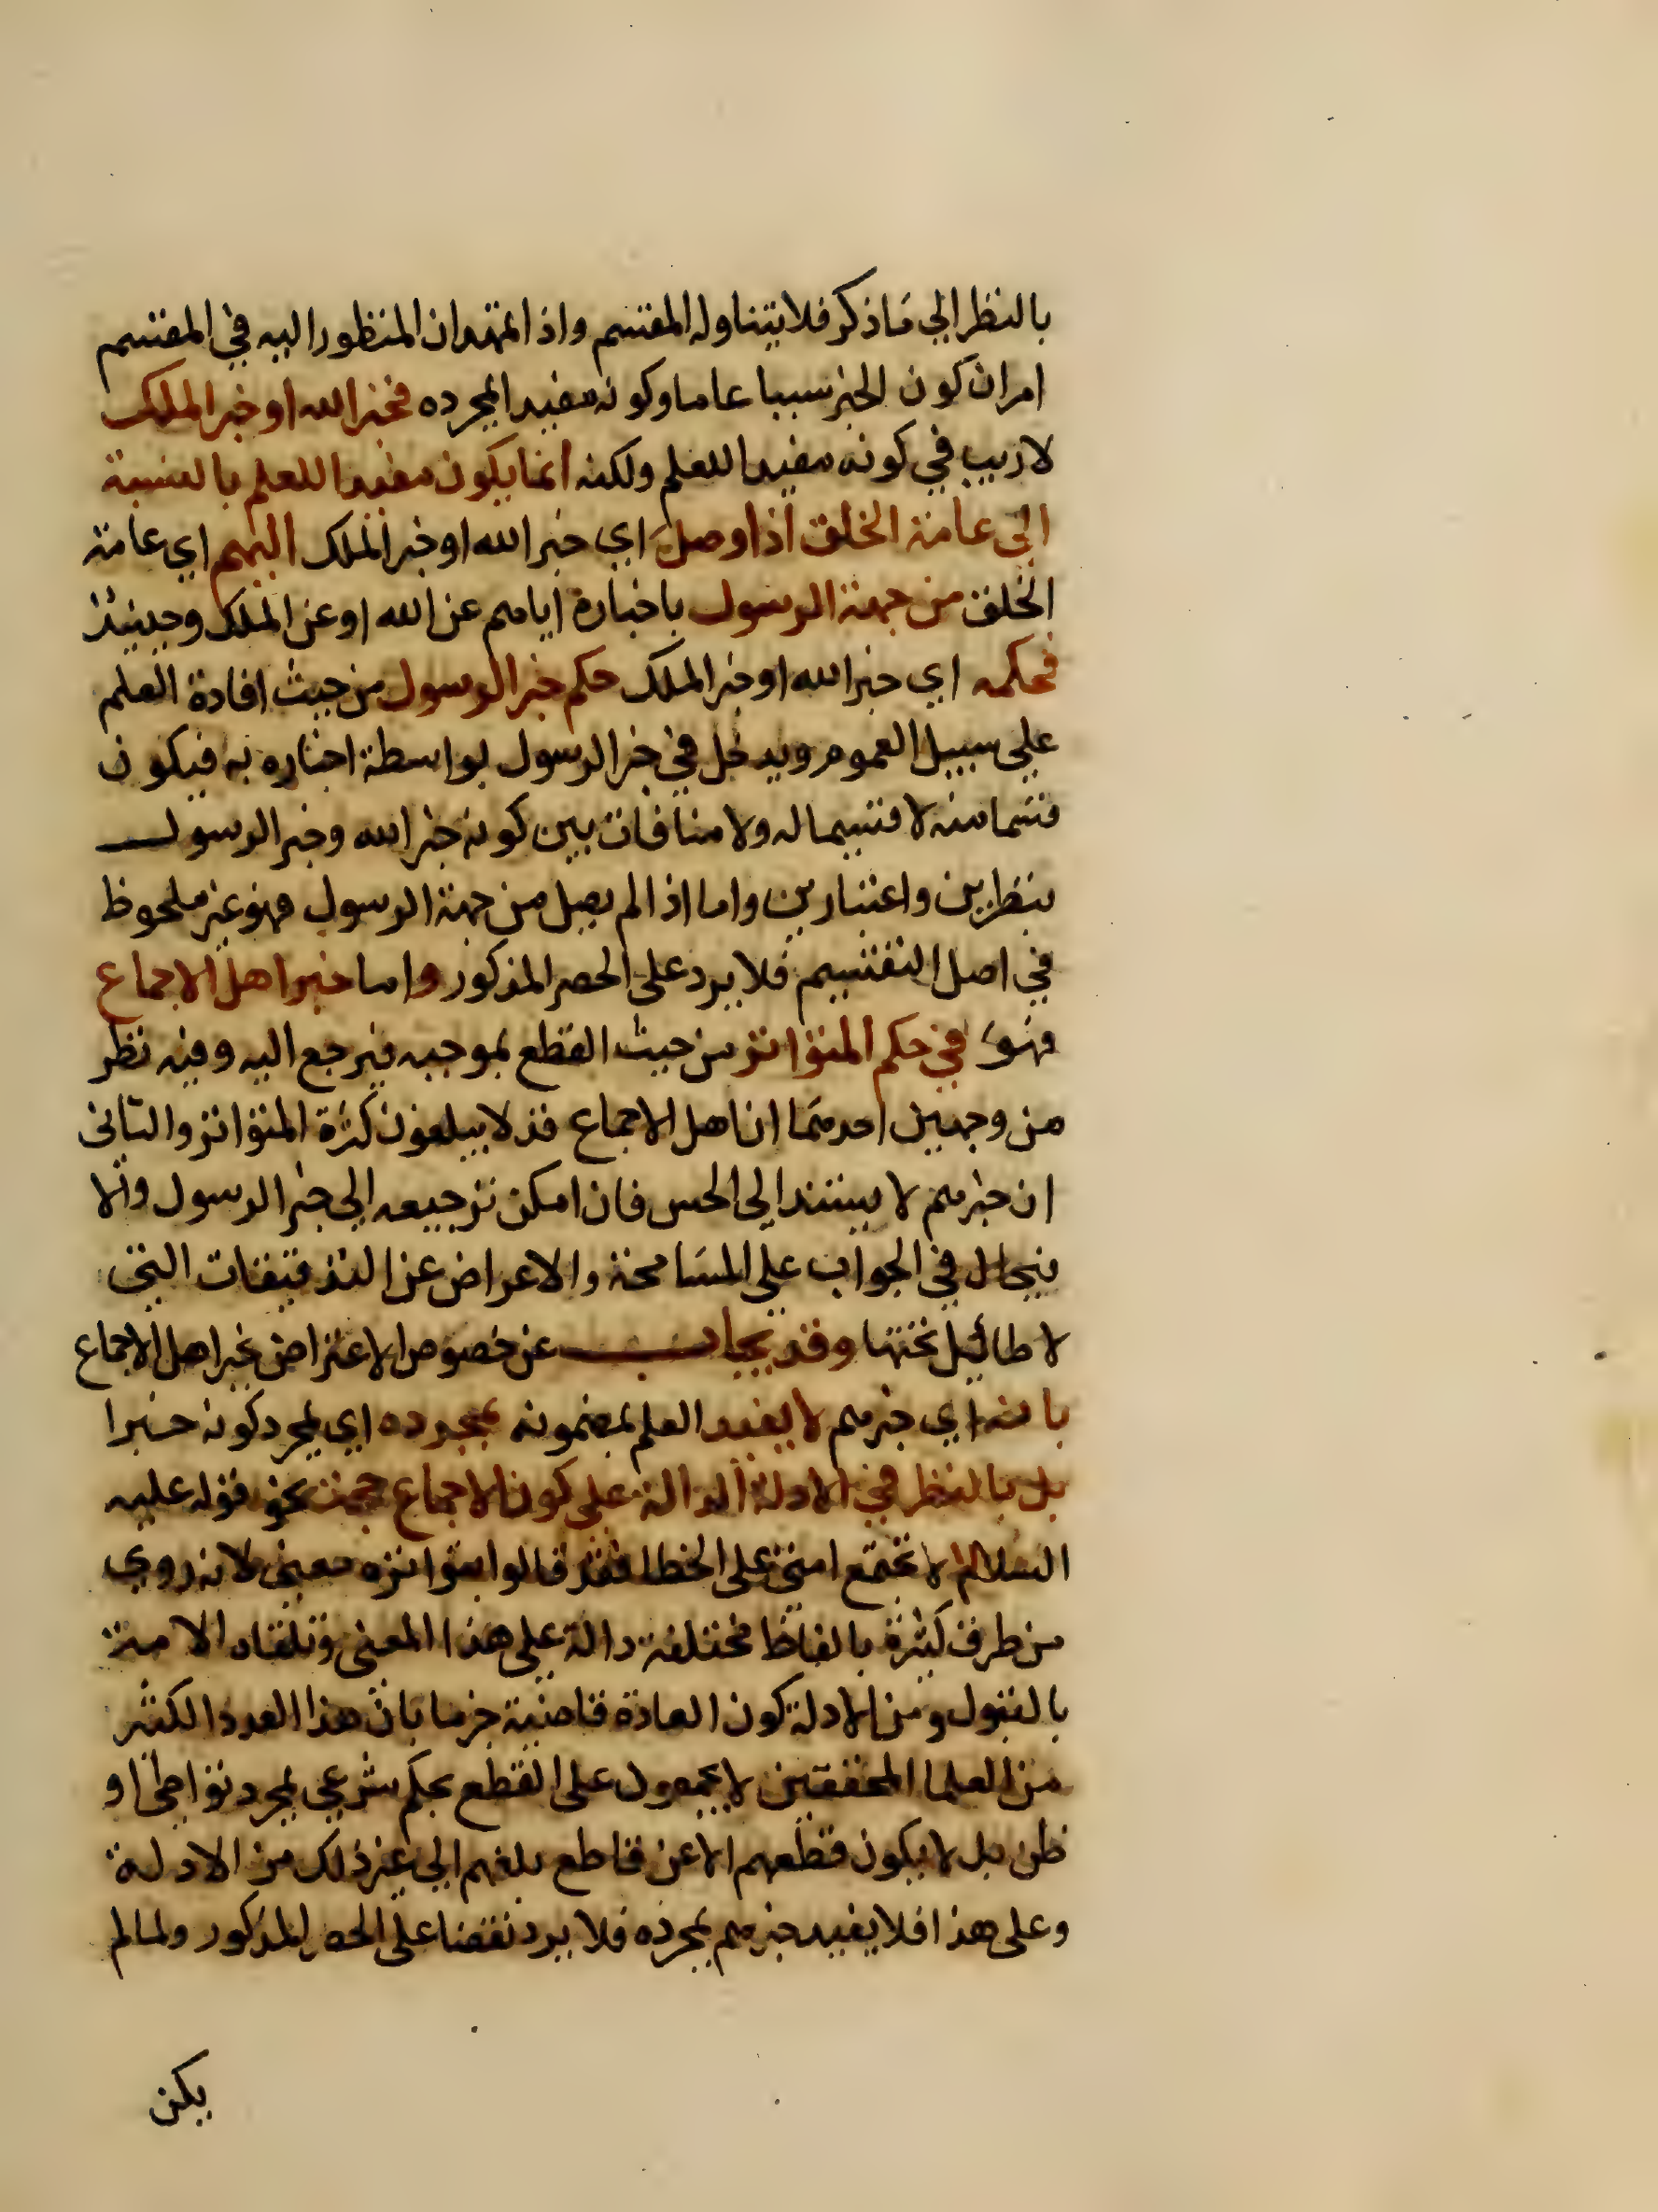 بالنظر الي ما ذكر فلا يتناوله المقسم واذا تمهد ان المنظور اليه في المقسم
امران كون الخبر سببا عاما وكونه مفيدا بمجرده فخبر الله او خبر الملك
لا ريب في كونه مفيدا للعلم ولكنه انما يكون مفيدا للعلم بالنسبة
الي عامة الخلق اذا وصل اي خبر الله او خبر الملك اليهم اي عامة
الخلق من جهة الرسول باخباره اياهم عن الله او عن الملك وحينئذ
فحكمه اي خبر الله او خبر الملك حكم خبر الرسول من حيث افادة العلم
علي سبيل العموم ويدخل في خبر الرسول بواسطة اخباره به فيكون
قسما منه لا قسيما له ولا منافات بين كونه خبر الله وخبر الرسول
بنظرين واعتبارين واما اذا لم يصل من جهة الرسول فهو غير ملحوظ
في اصل التقسيم فلا يرد على الحصر المذكور واما خبر اهل الاجماع
فهو في حكم المتواتر من حيث القطع بموجبه فيرجع اليه وفيه نظر
من وجهين احدهما ان اهل الاجماع قد لا يبلغون كثرة المتواتر والثاني
ان خبرهم لا يستند الى الحس فان امكن ترجيعه الي خبر الرسول والا
يحال في الجواب علي المسامحة والاعراض عن التدقيقات التي
لا طائيل تحتها وقد يجاب عن خصوص الاعتراض بخبر اهل الاجماع
بانه اي خبرهم لا يفيد العلم بمضمونه بمجرده اي بمجرد كونه خبرا
بل بالنظر في الادلة الدالة على كون الاجماع حجة نحو قوله عليه
السلام لا تجتمع امتي علي الخطا فقد قالوا بتواتره معني لانه روي
من طرق كثيرة بالفاظ مختلفة دالة علي هذا المعني وتلقاه الامة
بالقبول ومن الادلة كون العادة قاضية جزما بان هذا العدد الكثير
من العلما المحققين لا يجمعون على القطع بحكم شرعي بمجرد تواطئ او
ظن بل لا يكون قطعهم الا عن قاطع بلغهم الي غير ذلك من الادلة
وعلى هذا فلا يفيد خبرهم بمجرده فلا يرد نقضا على الحصر المذكور ولما لم
يكن